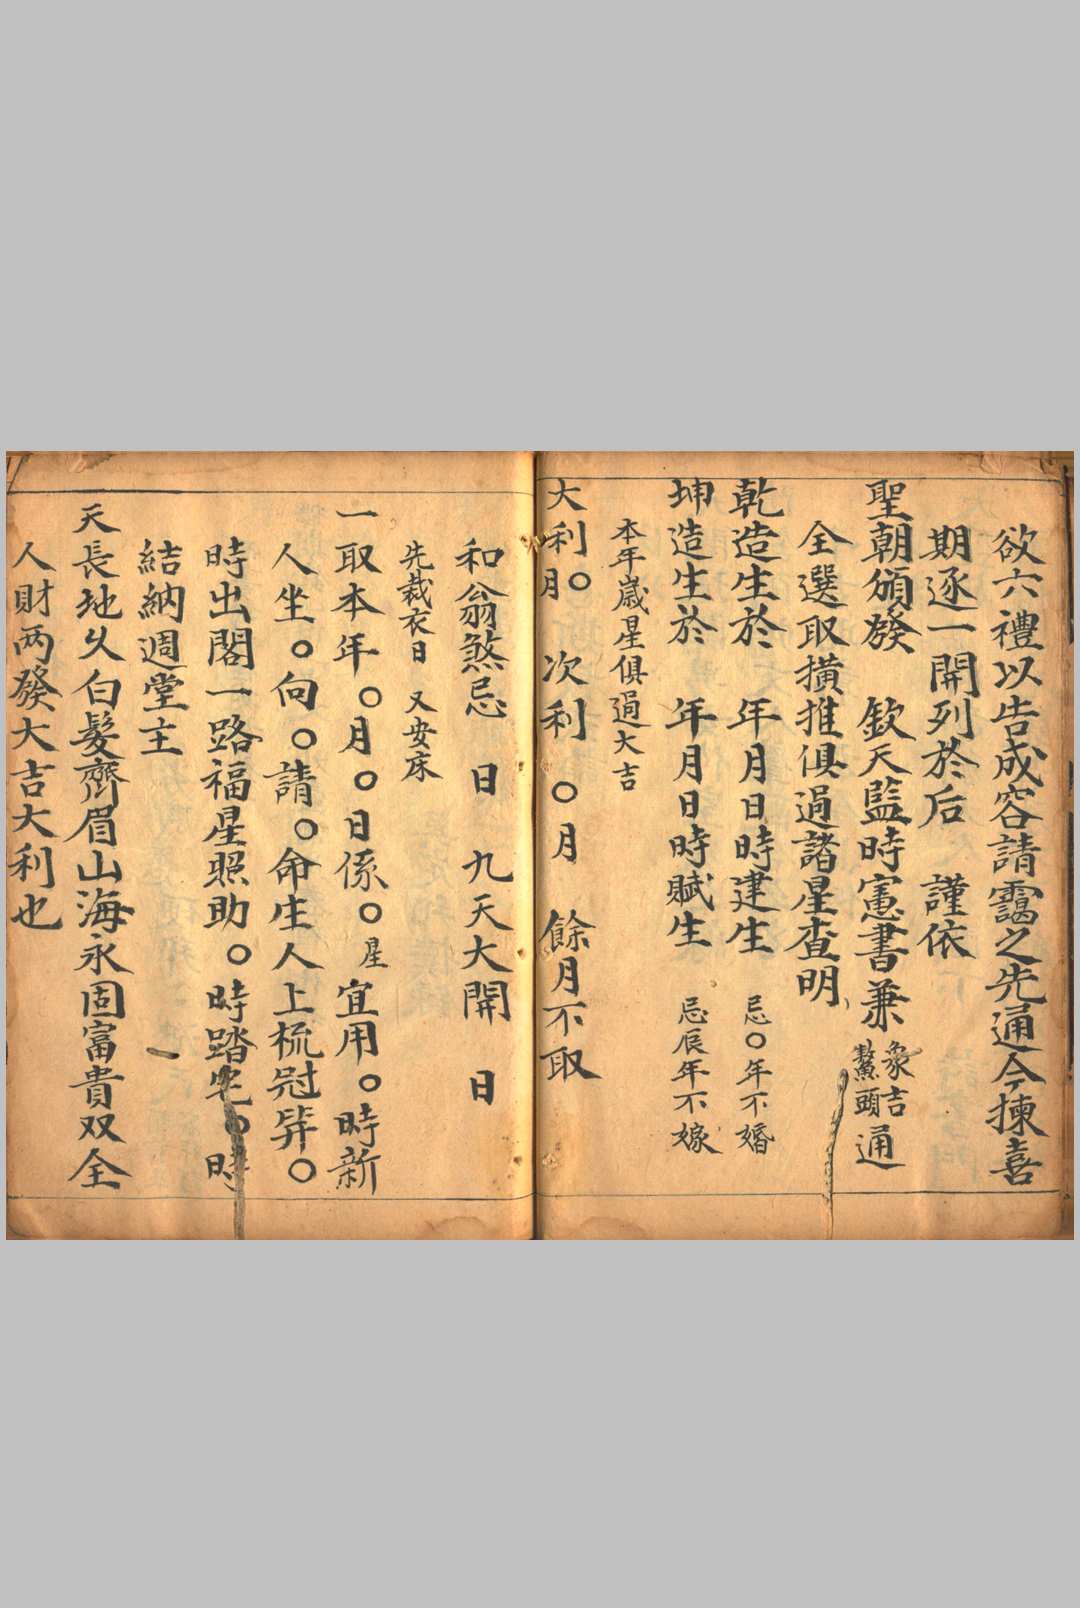 欲六禮以告成容請靄之先通今揀喜
期逐一開列於后　謹依
聖朝頒發　欽天監時憲書兼象吉鰲頭通
全選取橫推俱過諸星查明
乾造生於　年月日時建生　忌〇年不婚
坤造生於　年月日時賦生　忌辰年不嫁
本年歲星俱過大吉
大利〇月　次利　〇月　餘月不取
和翁煞忌　日　九天大開　日
先裁衣日　又安床
一取本年〇月〇日係〇星宜用〇時新
人坐〇向〇請〇命生人上梳冠笄〇
時出閣一路福星照助〇時踏宅〇時
結納週堂主
天長地久白髮齊眉山海永固富貴双全
人財两發大吉大利也